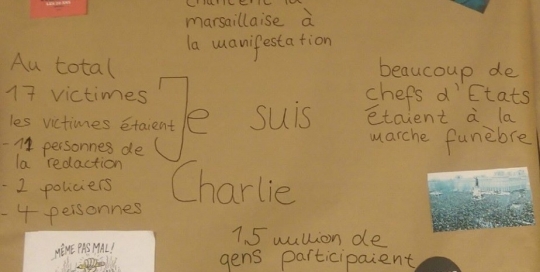 chantent la
marsaillaise à
la manifestation
Au total
17 victimes
les victimes étaient
- 11 personnes de
la redaction
- 2 policiers
- 4 personnes
Je suis
Charlie
beaucoup de
chefs d'Etats
étaient à la
marche funèbre
MÊME PAS MAL!
1,5 million de
gens participaient